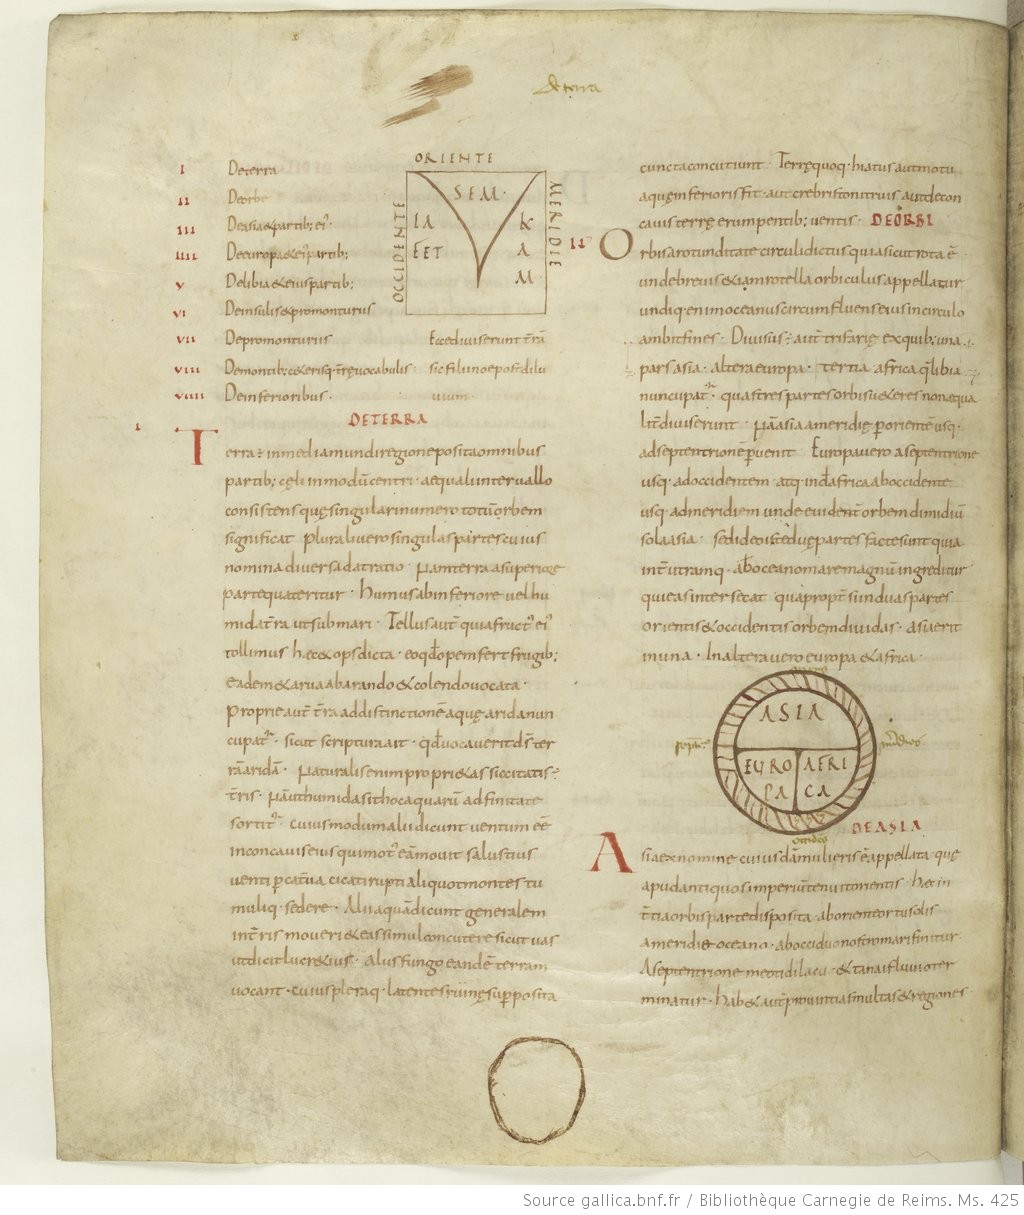 De terra
I De terra
II De orbe
III De asia & partib; ei'
IIII De europa & ei' partib;
V De libia & eius partib;
VI De insulis & promonturiis
VII De promonturiis
VIII De montib; ceterisq· terrę vocabulis
VIIII De inferioribus·
ORIENTE
OCCIDENTE
MERIDIE
SEM·
IA
FET
K
A
M
Ecce diviserunt trā
sic filii noe post dilu
vium·
DE TERRA
I Terra ÷ in media mundi regione posita omnibus
partib; cęli in modū centri· aequali intervallo
consistens quę singulari numero totū orbem
significat plurali vero singulas partes cuius
nomina diversa dat ratio· Nam terra a superiore
parte qua teritur· humus ab inferiore vel hu
mida tra ut sub mari· Tellus aut quia fruct' ei'
tollimus hęc & ops dicta· eo qd opem fert frugib;
eadem & arva ab arando & colendo vocata·
Proprie aut tra ad distinctionē aquę arida nun
cupat· sicut scriptura ait· qd vocaverit ds ter
rā aridā· Naturalis enim propri&as siccitatis ÷
tris· Nā ut humida sit hoc aquarū adfinitate
sortit· cuius modum alii dicunt ventum eē
in concavis eius qui mot' eā movit salustius
venti p cava cicati rupti aliquot montes tu
muliq· sedere· Alii aquā dicunt generalem
in tris moveri & eas simul concutere sicut vas
ut dicit lucr&ius· Alii sfungo eandē terram
vocant· cuius pleraq· latentes ruinę sup posita
cuncta concutiunt· Terrę quoq· hiatus aut motu
aquę inferioris fit· aut crebris tonitruis aut de con
cavis terrę erumpentib; ventis· DE ORBI
II Orbis a rotunditate circuli dictus quia sicut rota ē
unde brevis & iam rotella orbiculus appellatur
undiq· enim oceanus circumfluens eius in circulo
ambit fines· Divisus ÷ aut trifarię ex quib; una
pars asia· altera europa· tertia africa q libia
nuncupat· quas tres partes orbis veteres non aequa
lit diviserunt· Nā asia a meridie p oriente usq·
ad septentrionē pvenit Europa vero a septentrione
usq· ad occidentem atq· inde africa ab occidente
usq· ad meridiem unde evident orbem dimidiū
sola asia· sed ideo istę duę partes factę sunt quia
int utramq· ab oceano mare magnū ingreditur
qui eas intersecat quapropt si in duas partes
orientis & occidentis orbem dividas· asia erit
in una· In altera vero europa & africa·
oriens
ASIA
EURO
PA
AFRI
CA
sept
meridies
occidens
DE ASIA
Asia ex nomine cuiusdā mulieris ē appellata quę
apud antiquos imperiū tenuit orientis· hęc in
ttia orbis parte disposita· ab oriente ortu solis
a meridie oceano· ab occiduo nostro mari finitur·
A septentrione meotidi lacu· & tanai fluvio ter
minatur· hab& aut provintias multas & regiones
Source gallica.bnf.fr / Bibliothèque Carnegie de Reims. Ms. 425